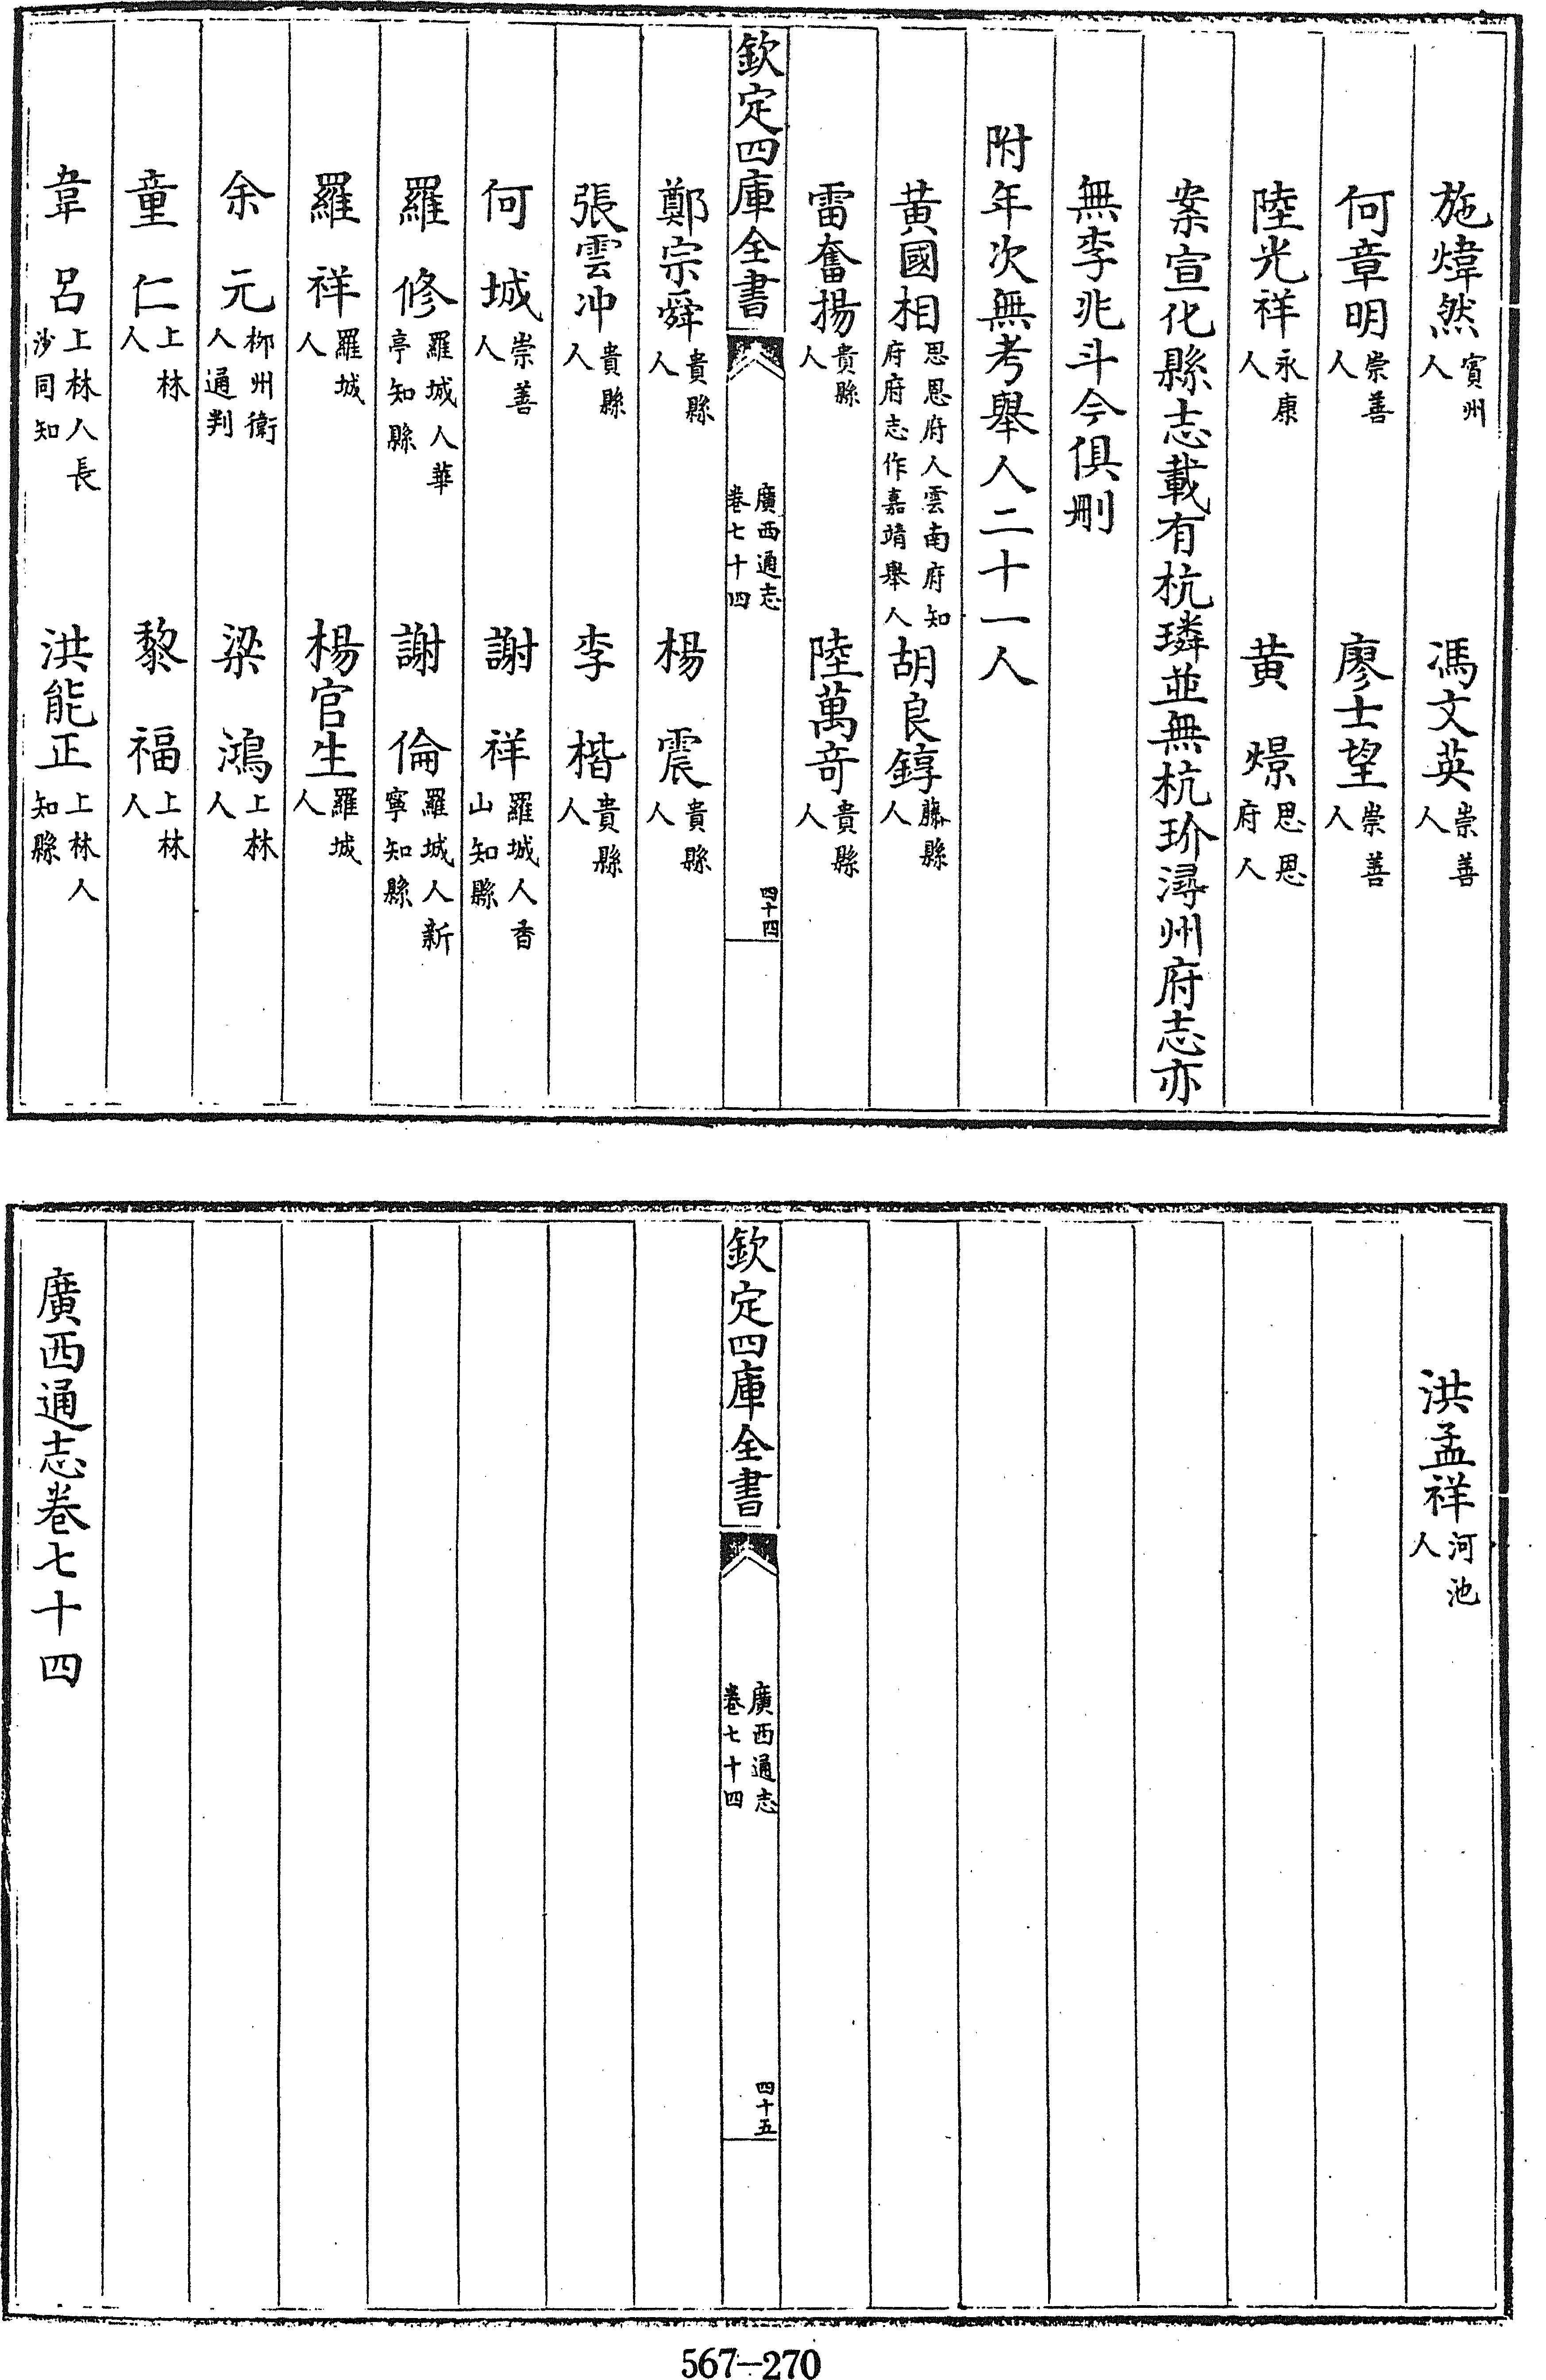 施煒然賓州人　馮文英崇善人
何章明崇善人　廖士望崇善人
陸光祥永康人　黄　燝思恩府人
案宣化縣志載有杭璘並無杭玠潯州府志亦
無李兆斗今俱刪
附年次無考舉人二十一人
黄國相思恩府人雲南府知府府志作嘉靖舉人　胡良錞藤縣人
雷奮揚貴縣人　陸萬奇貴縣人
欽定四庫全書　廣西通志卷七十四　四十四
鄭宗舜貴縣人　楊　震貴縣人
張雲冲貴縣人　李　楷貴縣人
何　城崇善人　謝　祥羅城人香山知縣
羅　修羅城人華亭知縣　謝　倫羅城人新寧知縣
羅　祥羅城人　楊官生羅城人
余　元柳州衛人通判　梁　鴻上林人
童　仁上林人　黎　福上林人
韋　呂上林人長沙同知　洪能正上林人知縣
洪孟祥河池人
欽定四庫全書　廣西通志卷七十四　四十五
廣西通志卷七十四
567-270